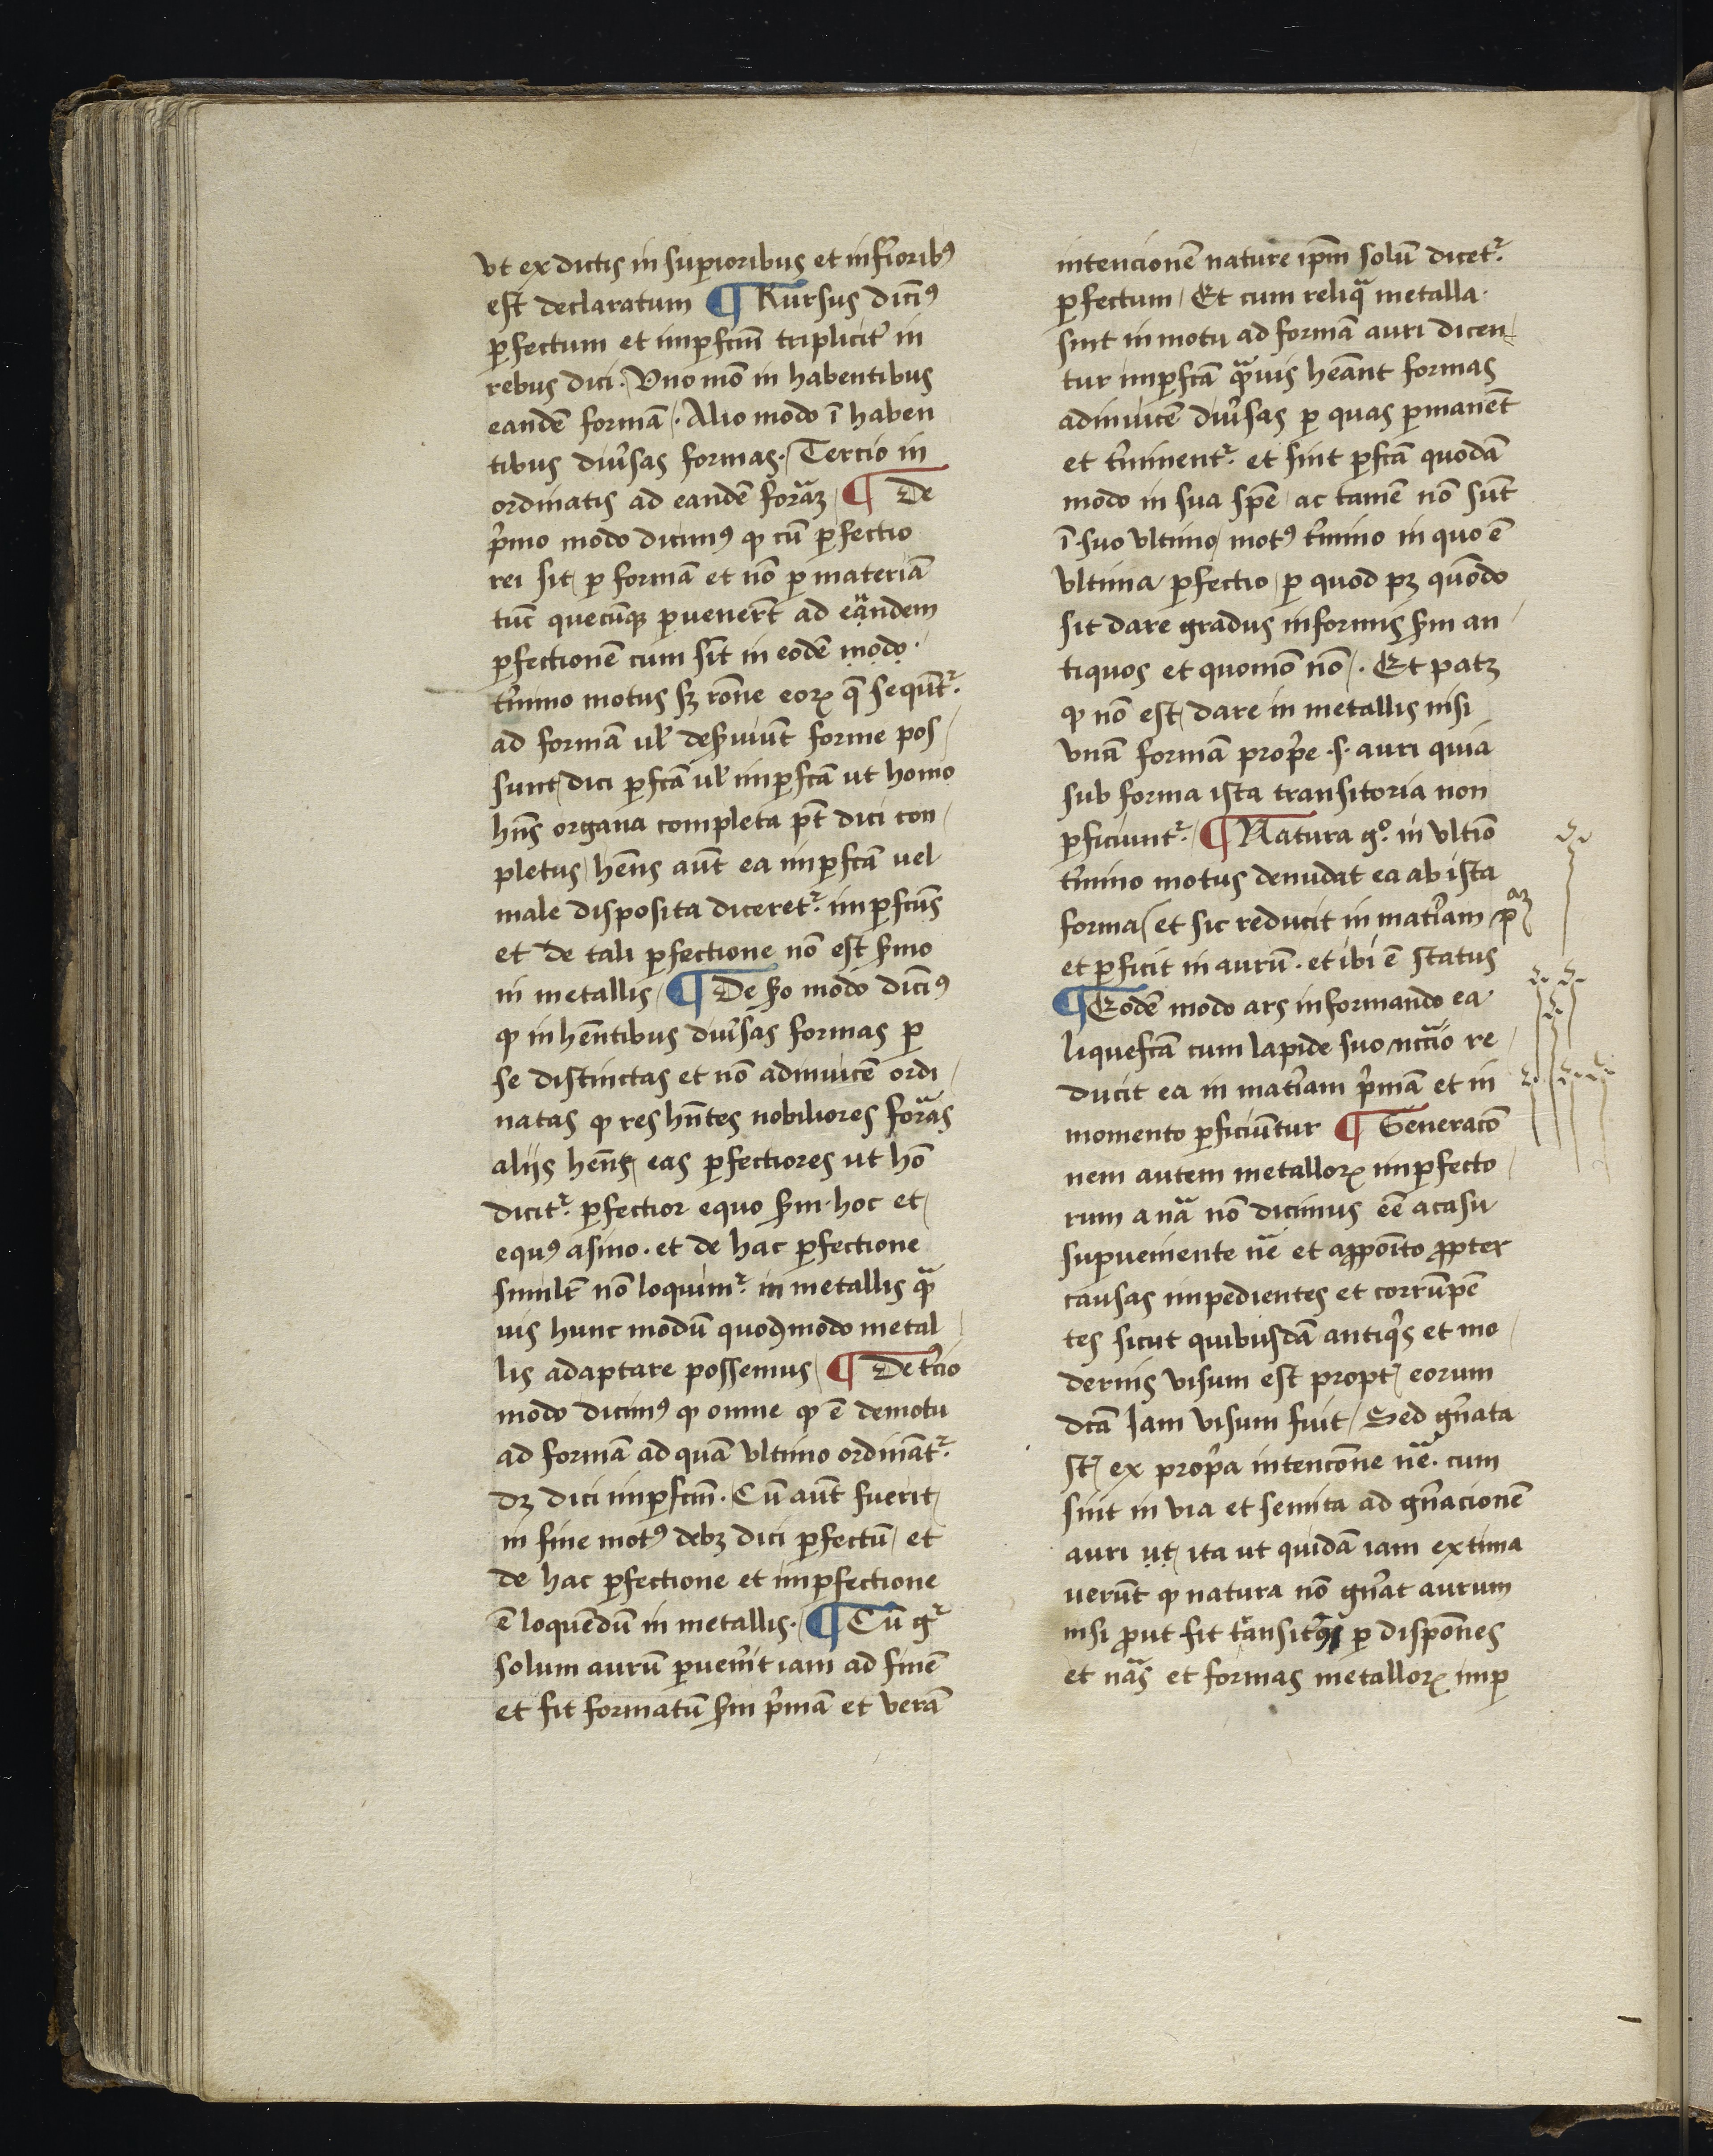 vt ex dictis in supioribus et infioribꝰ
est declaratum ¶ Rursus dicimꝰ
ꝑfectum et imꝑfcm̄ triplicit̾ in
rebus dici · Vno mō in habentibus
eandē formā · Alio modo ī haben
tibus diu̾sas formas · Tercio in
ordinatis ad eandē foraꝫ ¶ De
p̾mo modo dicimꝰ ꝙ cū ꝑfectio
rei sit ꝑ formā et nō ꝑ materiā
tūc quecūqꝫ ꝑuenerīt ad eandem
ꝑfectionē cum sīt in eodē modo ·
t̾mino motus sꝫ rōne eoꝝ q̄ sequūtᷣ
ad formā ul̾ deß̾uiūt forme pos
sunt dici ꝑfcā ul̾ imꝑfcā ut homo
hn̄s organa completa pt̄ dici con
pletus hēns aūt ea imꝑfcā uel
male disposita diceretᷣ imꝑfcūs
et de tali ꝑfectione nō est ß̾mo
in metallis ¶ De ßo modo dicimꝰ
ꝙ in hēntibus diu̾sas formas ꝑ
se distinctas et nō adinuicē ordi
natas ꝙ res hn̄tes nobiliores foras
aliis hēnt eas ꝑfectiores ut hō
dicitᷣ ꝑfectior equo ßm hoc et
equꝰ asino · et de hac ꝑfectione
similr̄ nō loquimᷣ in metallis qᷓ
uis hunc modū quoqmodo metal
lis adaptare possemus ¶ De t̾cio
modo dicimꝰ ꝙ omne ꝙ ē de motu
ad formā ad quā vltimo ordināt᷑
dꝫ dici imꝑfcm̄ · Cū aūt fuerit
in fine motꝰ debꝫ dici ꝑfectū et
de hac ꝑfectione et imꝑfectione
ē loquēdū in metallis · ¶ Cū gᷣ
solum aurū ꝑuen̾it iam ad finē
et fit formatū ßm p̾mā et verā
intencionē nature ip̄m solū dicetᷣ
ꝑfectum Et cum reliqᷓ metalla ·
sint in motu ad formā auri dicen
tur imꝑfcā qᷓuis hēant formas
adinuicē diu̾sas ꝑ quas ꝑmanēt
et t̾minentᷣ et sint ꝑfcā quodā
modo in sua spē ac tamē nō sūt
ī suo vltimo motꝰ t̾mino in quo ē
vltima ꝑfectio ꝑ quod pꝫ quōdo
sit dare gradus in formis ßm an
tiquos et quomō nō · Et patꝫ
ꝙ nō est dare in metallis nisi
vnā formā prop̾e ·s· auri quia
sub forma ista transitoria non
ꝑficiuntᷣ ¶ Natura gͦ in vltīo
t̾mino motus denudat ea ab ista
forma et sic reducit in mat̾iam pᵃꝫ
et ꝑficit in aurū · et ibi ē status
¶ Eodē modo ars informando ea
liquefcā cum lapide suo nccᷓio re
ducit ea in mat̾iam p̾mā et in
momento ꝑficiūtur ¶ Generacō
nem autem metalloꝝ imꝑfecto
rum a nᷓa nō dicimus eē a casu
supueniente nᷓe et apꝓpoīto ꝓpter
causas impedientes et corrūpē
tes sicut quibusdā antiqͥs et mo
dernis visum est propt̾ eorum
dcā iam visum fuit Sed gn̄ata
st̾ ex prop̾a intencōne nᷓe · cum
sint in via et semita ad gn̄acionē
auri ut ita ut quidā iam extima
verūt ꝙ natura nō gn̄at aurum
nisi ꝓut fit tᷓansitꝰ ꝑ dispōnes
et nᷓas et formas metalloꝝ imꝑ